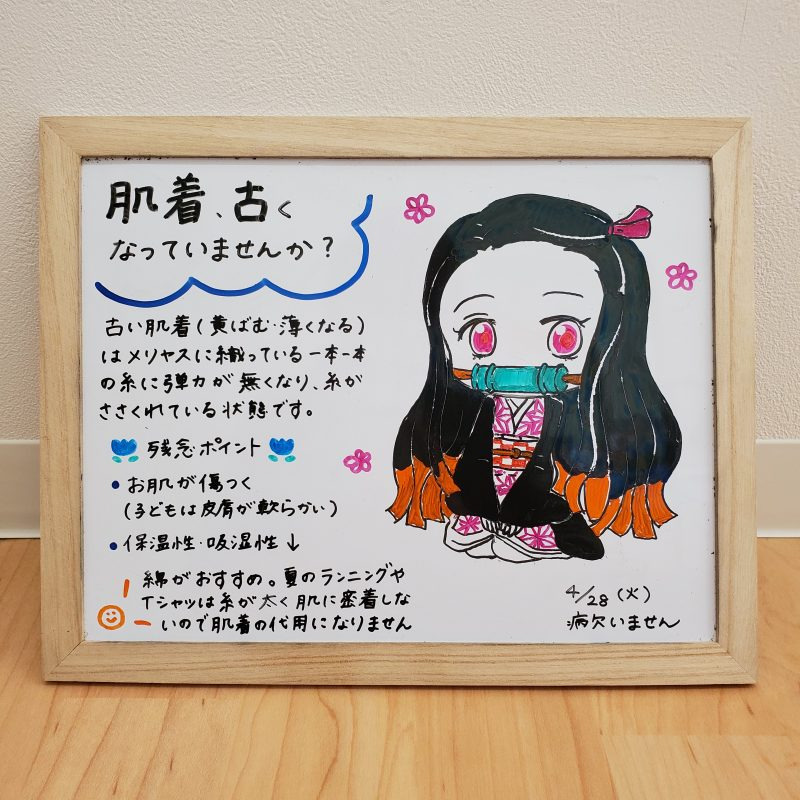 肌着、古く
なっていませんか？
古い肌着(黄ばむ・薄くなる)
はメリヤスに織っている一本一本
の糸に弾力が無くなり、糸が
ささくれている状態です。
残念ポイント
• お肌が傷つく
(子どもは皮膚が軟らかい)
• 保温性・吸湿性↓
綿がおすすめ。夏のランニングや
Tシャツは糸が太く肌に密着しな
いので肌着の代用になりません
4/28(火)
病欠いません